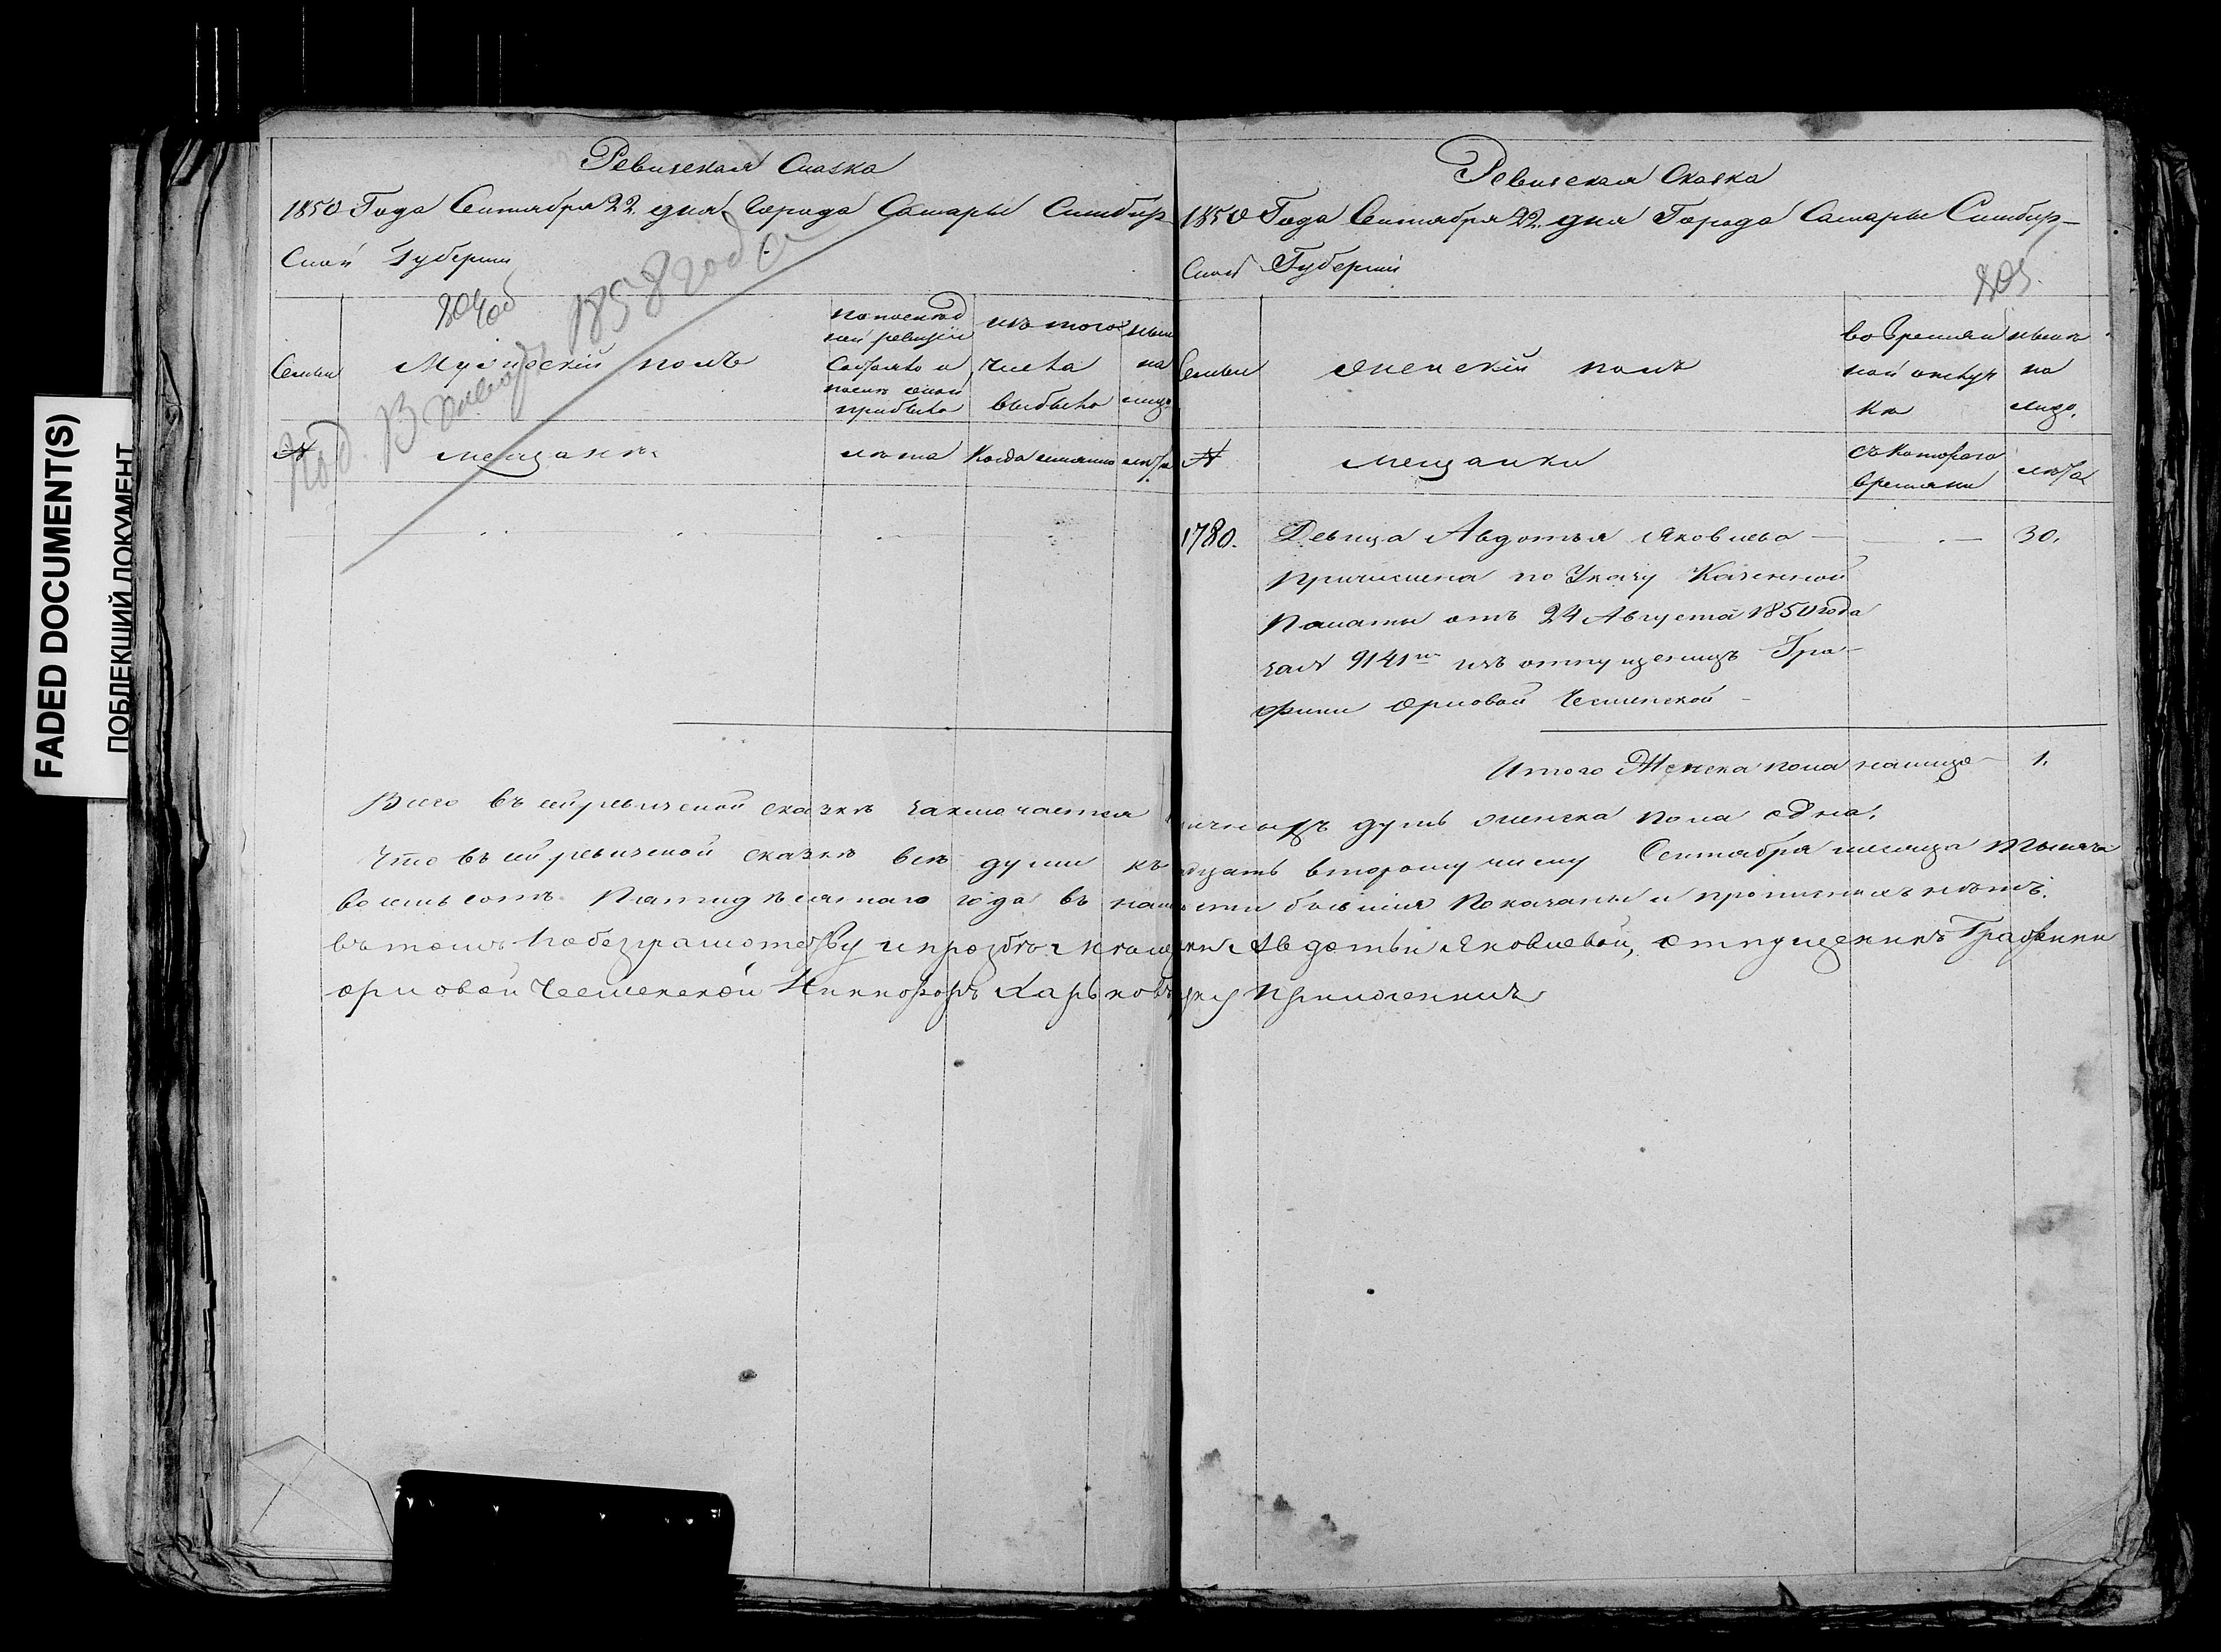 FADED DOCUMENT(S)
ПОБЛЕКШИЙ ДОКУМЕНТ
Ревизская Сказка
1850 Года Сентября 22. дня Города Самары Симбир-
ской Губернии
804об
1858 года
Семьи
Мужеский полъ
по послѣд
ней ревизіи
состояло и
послѣ оной
прибыло
изъ того
числа
выбыло
нынѣ
на
лицо
№
мещанъ
лѣта
Когда именно
лѣта
Ревизская Сказка
1850 Года Сентября 22. дня Города Самары Симбир-
ской Губерніи
805
Семьи
Женскій полъ
во времян
ной отлуч
кѣ
нынѣ
на
лицо.
№
мещанки
съ котораго
времяни
лѣта
1780. Девица Авдотья Яковлева — 30.
Причислена по Указу Казенной
Палаты отъ 24 Августа 1850 года
за № 9141 изъ отпущеницъ Гра-
фини Орловой Чесменской
Итого Женска пола налицо 1.
Всего въ сей ревизской сказкѣ заключается наличныхъ душъ женска пола одна.
Что въ сей ревизской сказкѣ всѣ души къ двадцать второму числу Сентября месяца тысяча
восемьсотъ Пятидесятаго года въ наличности бывшия показаны и прописныхъ нѣтъ.
въ томъ по безграмотству и прозбѣ Авдотьи Яковлевой, отпущеникъ Графини
Орловой Чесменской Никифоръ Харьковъ руку приложилъ